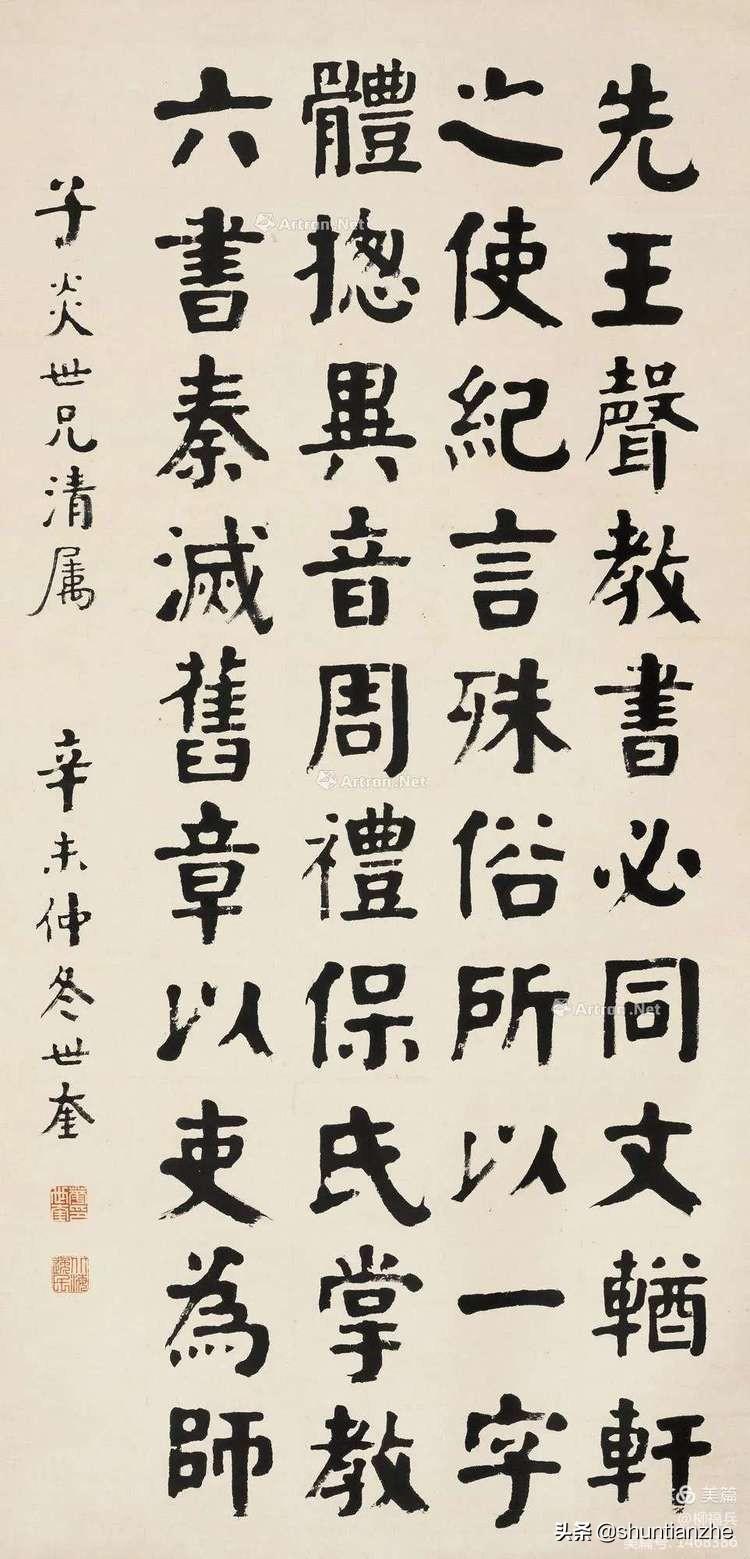 先王聲教書必同文輶軒
之使紀言殊俗所以一字
體揔異音周禮保氏掌教
六書秦滅舊章以吏為師
子炎世兄清属
辛未仲冬世奎
Artron.Net
Artron.Net
Artron.Net
美篇
@柳福兵
美篇号:1468386
头条 @shuntianzhe